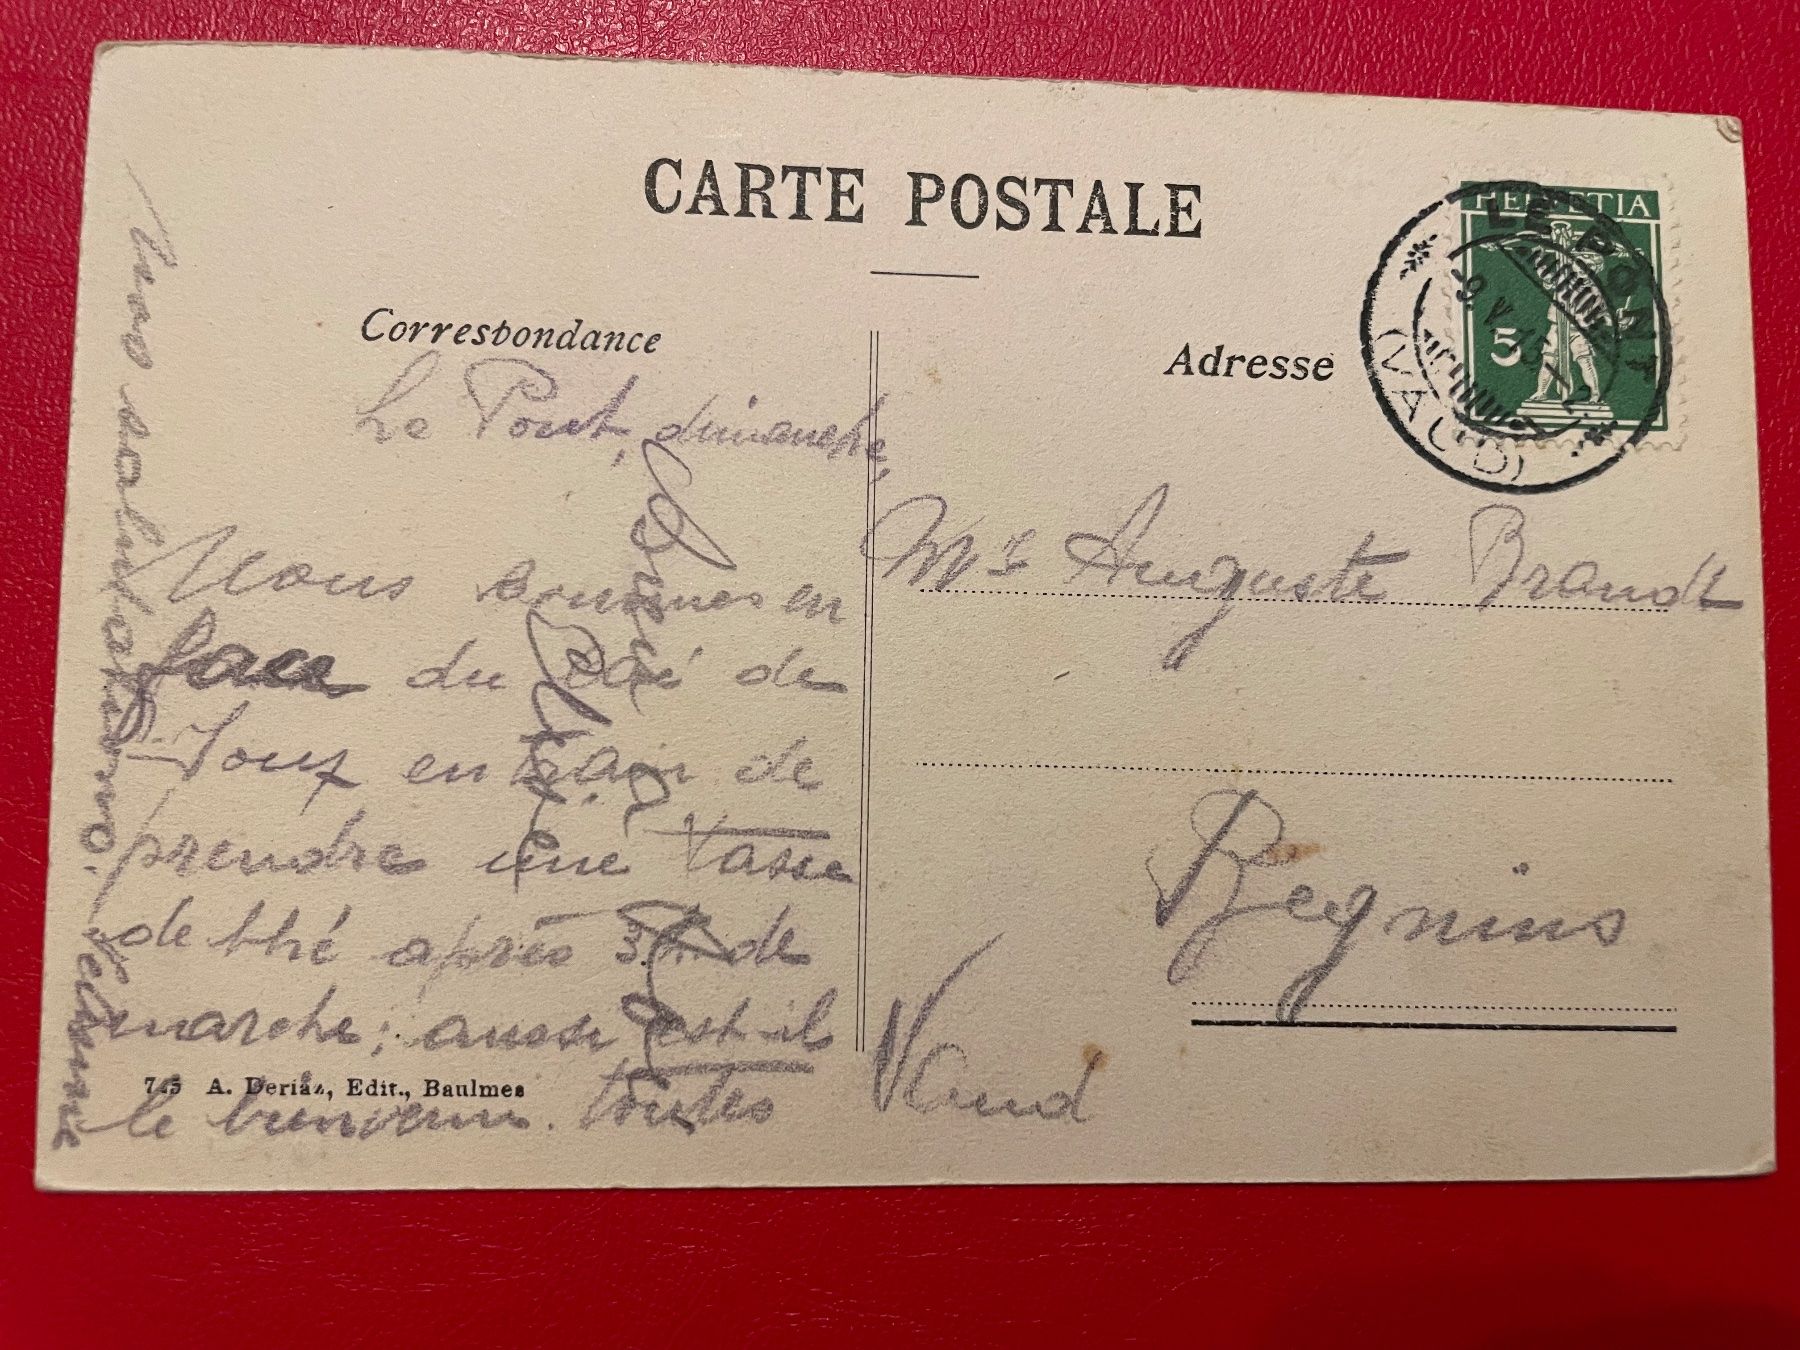 CARTE POSTALE
Correspondance
Adresse
HELVETIA
5
LE PONT
-9.V.15-2
(VAUD)
Le Pont, dimanche,
Nous sommes en
face du Lac de
Joux en train de
prendre une tasse
de thé après 3 h de
marche; aussi est-il
le bienvenu. Toutes
nos salutations.
Mr Auguste Brandt
Begnins
Vaud
745 A. Deriaz, Edit., Baulmes